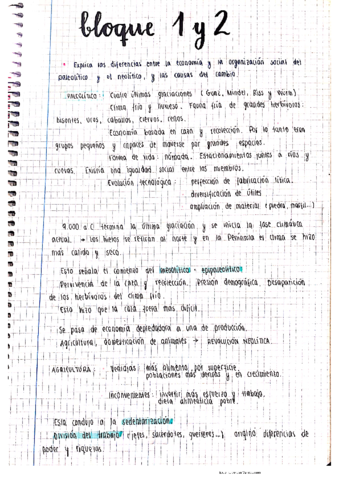 bloque 1 y 2
* Explica las diferencias entre la economía y la organización social del
paleolítico y el neolítico, y las causas del cambio.
PALEOLÍTICO: Cuatro últimas glaciaciones (Gunz, Mindel, Riss y Würm)
Clima frío y húmedo. Fauna fría de grandes herbívoros:
bisontes, uros, caballos, ciervos, renos.
Economía basada en caza y recolección. Por lo tanto eran
grupos pequeños y capaces de moverse por grandes espacios.
Forma de vida: nómada. Estacionamientos juntos a ríos y
cuevas. Existía una igualdad social entre los miembros.
Evolución tecnológica: perfección de fabricación lítica.
diversificación de útiles
ampliación de material (piedra, marfil...)
9.000 a.C. termina la última glaciación y se inicia la fase climática
actual. → los hielos se retiran al norte y en la Península el clima se hizo
más cálido y seco.
Esto señala el comienzo del mesolítico - epipaleolítico
Pervivencia de la caza y recolección. Presión demográfica. Desaparición
de los herbívoros del clima frío.
Esto hizo que la caza fuera más difícil.
Se pasa de economía depredadora a una de producción.
Agricultura, domesticación de animales → REVOLUCIÓN NEOLÍTICA.
AGRICULTURA: Ventajas: más alimento por superficie
poblaciones más densas y en crecimiento.
Inconvenientes: invertir más esfuerzo y trabajo,
dieta alimenticia pobre.
Esta condujo a la sedentarización
División del trabajo (jefes, sacerdotes, guerreros...) originó diferencias de
poder y riquezas.